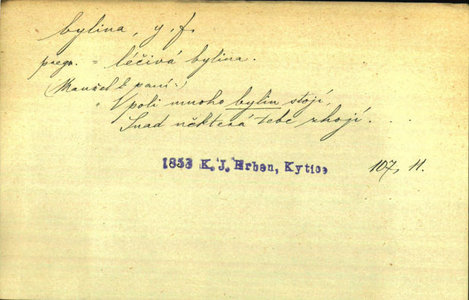 bylina, y, f.
pregn. = léčivá bylina.
(Manžel k paní:)
V poli mnoho bylin stojí,
Snad některá tebe zhojí.
1853 K. J. Erben, Kytice 107, 11.